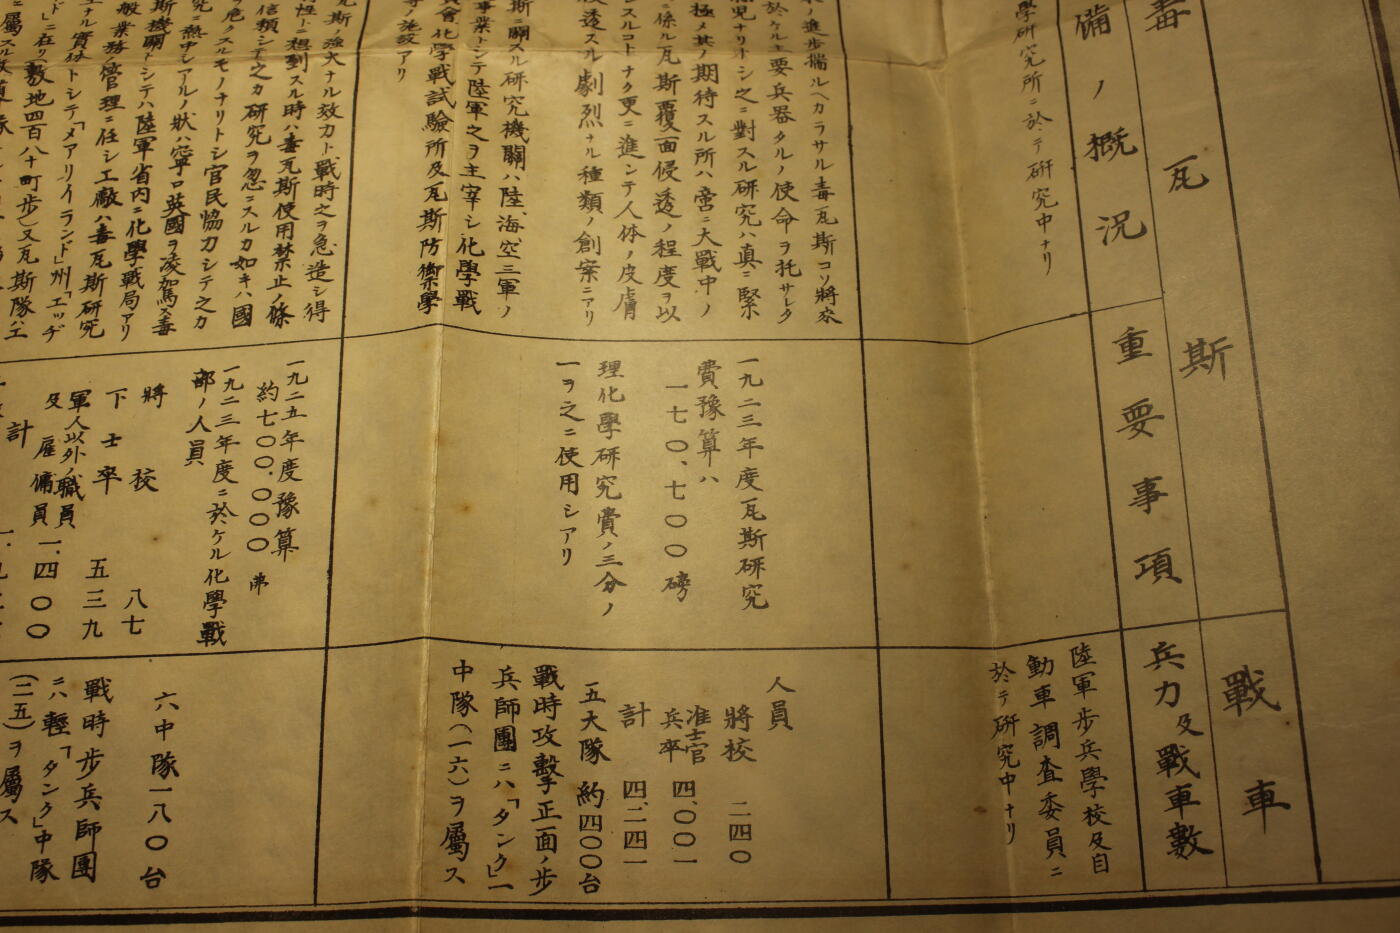 毒瓦斯
備ノ概況
重要事項
戰車
兵力及戰車數
學研究所ニ於テ研究中ナリ
陸軍步兵學校及自
動車調査委員ニ
於テ研究中ナリ
ノ進步揣ルヘカラサル毒瓦斯コソ將來
於ケル主要兵器タルノ使命ヲ托サレタ
ナリトシ之ニ對スル研究ハ真ニ緊
極メ其ノ期待スル所ハ啻ニ大戰中ノ
ニ係ル瓦斯覆面侵透ノ程度ヲ以
スルコトナク更ニ進ンテ人体ノ皮膚
透スル劇烈ナル種類ノ創案ニアリ
斯ニ關スル研究機關ハ陸、海、空三軍ノ
事業トシテ陸軍之ヲ主宰シ化學戰
會、化學戰試驗所及瓦斯防禦學
等ノ施設アリ
一九二三年度瓦斯研究
費豫算ハ
一七〇、七〇〇磅
理化學研究費ノ三分ノ
一ヲ之ニ使用シアリ
人員
將校 二四〇
准士官
兵卒 四、〇〇一
計 四、二四一
五大隊 約四〇〇台
戰時攻擊正面ノ步
兵師團ニハ「タンク」一
中隊(一六)ヲ屬ス
瓦斯ノ強大ナル效力ト戰時之ヲ急造シ得
ニ想到スル時ハ毒瓦斯使用禁止ノ條
信賴シテ之カ研究ヲ忽ニスルカ如キハ國
ヲ危クスルモノナリトシ官民協力シテ之カ
究ニ熱中シアルノ狀ハ寧ロ英國ヲ凌駕ス毒
斯機關トシテハ陸軍省內ニ化學戰局アリ
般業務ノ管理ニ任シ工廠ハ毒瓦斯研究
ナル實体トシテ「メアリイランド」州「エッヂ
ド」ニ在リ(敷地四百八十町步)又瓦斯隊ハエ
一九二五年度豫算
約七〇〇.〇〇〇弗
一九二三年度ニ於ケル化學戰
部ノ人員
將校 八七
下士卒 五三九
軍人以外ノ職員
及雇傭員 一.四〇〇
計
六中隊一八〇台
戰時步兵師團
ニハ輕「タンク」中隊
(二五)ヲ屬ス